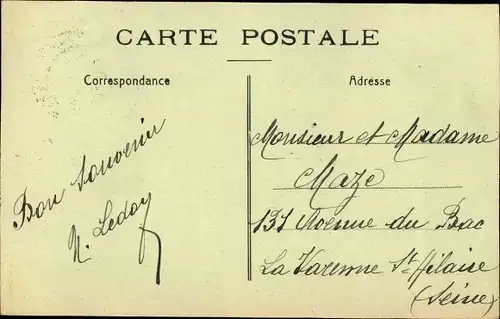 CARTE POSTALE
Correspondance
Bon Souvenir
Adresse
Monsieur et Madame
Maze
131 Avenue du Bac
La Varenne St Hilaire
(Seine)